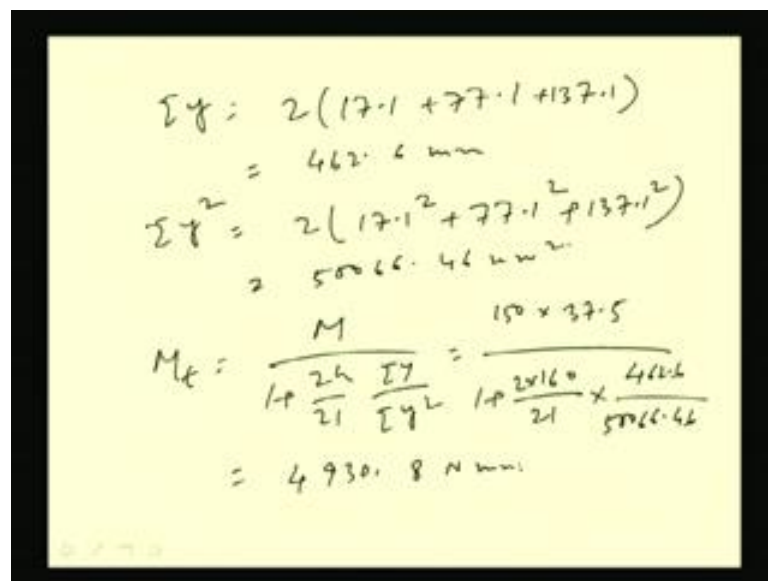 Σy = 2(17.1 + 77.1 + 137.1)
= 462.6 mm
Σy² = 2(17.1² + 77.1² + 137.1²)
= 50066.46 mm²
M_t = M / (1 + 2h/21 Σy/Σy²) = 150 x 37.5 / (1 + 2x160/21 x 462.6/50066.46)
= 4930.8 N mm.